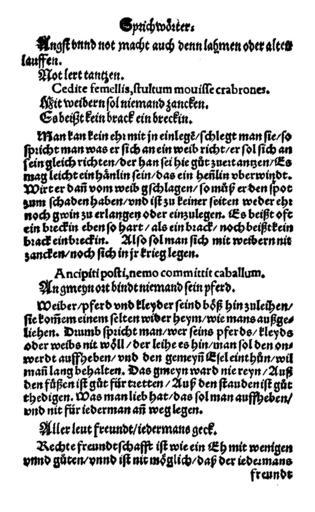 Sprichwörter.
Angst vnnd not macht auch denn lahmen oder alten
lauffen.
Not lert tantzen.
Cedite femellis, stultum mouisse crabrones.
Mit weibern sol niemand zancken.
Es beißt kein brack ein breckin.
Man kan kein ehr mit jn einlegē/ schlegt man sie/ so
spricht man was er sich an ein weib richt/ er sol sich an
sein gleich richten/ der han sei hie gůt zuertantzen/ Es
mag leicht ein hänlin sein/ das ein henlin vberwindt.
Wirt er dañ vom weib gschlagen/ so můß er den spot
zum schaden haben/ vnd ist zu keiner seiten weder ehr
noch gwin zu erlangen oder einzulegen. Es beißt oft
ein breckin eben so hart/ als ein brack/ noch beißt kein
brack ein breckin. Also sol man sich mit weibern nit
zancken/ noch sich in jr krieg legen.
Ancipiti posti, nemo committit caballum.
An gmeyn ort bindt niemand sein pferd.
Weiber/ pferd vnd kleyder seind böß hin zuleihen/
sie kommē einem selten wider heym/ wie mans außge-
liehen. Drumb spricht man/ wer seins pferds/ kleyds
oder weibs nit wöll/ der leihe es hin/ man sol den on-
werdt auffheben/ vnd den gemeyñ Esel einthůn/ wil
mañ lang behalten. Das gmeyn ward nie reyn/ Auß
den füßen ist gůt für tretten/ Auß den stauden ist gůt
thedigen. Was man lieb hat/ das sol man auffheben/
vnd nit für iederman añ weg legen.
Aller leut freundt/ iedermans geck.
Rechte freundtschafft ist wie ein Eh mit wenigen
vnnd gůten/ vnnd ist nit möglich/ daß der iedermans
freundt